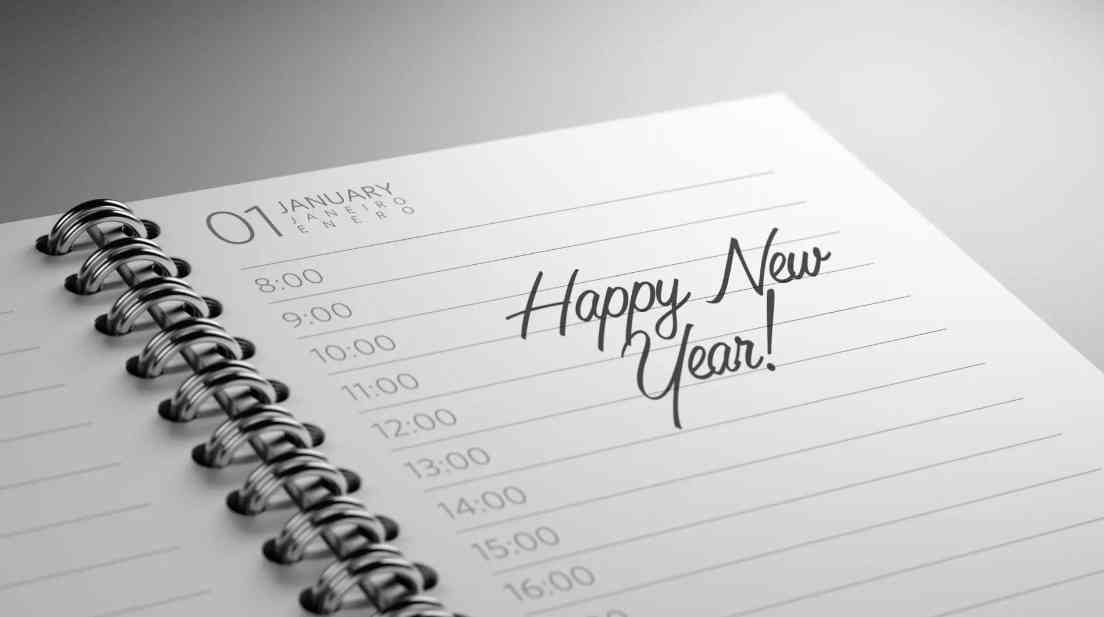 01 JANUARY
JANEIRO
ENERO
8:00
9:00
10:00
11:00
12:00
13:00
14:00
15:00
16:00
Happy New
Year!